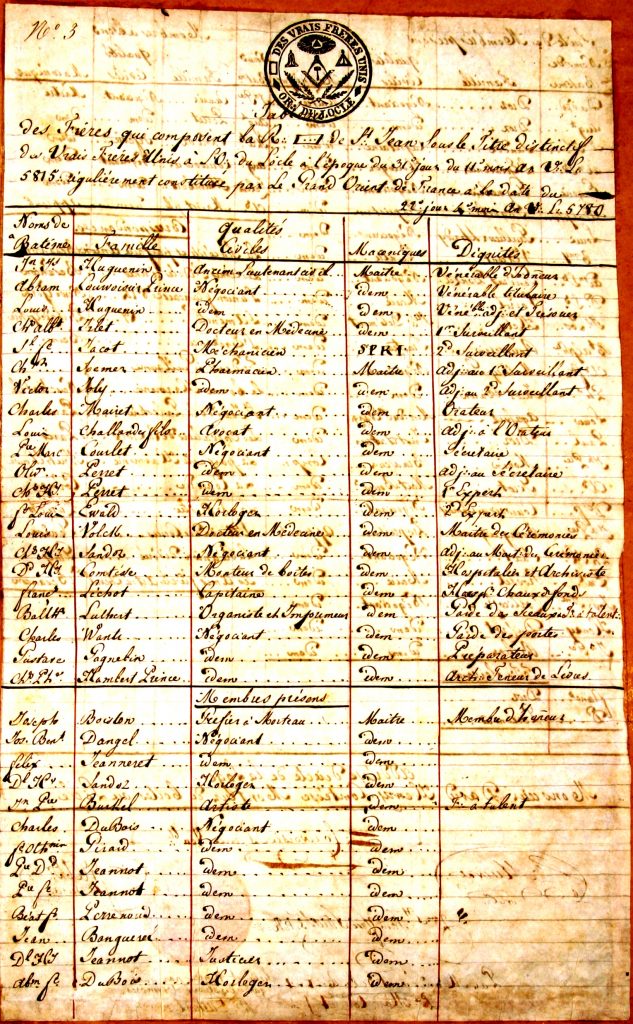 N.º 3
DES VRAIS FRÈRES UNIS
OR∴ DU LOCLE
Tab
des Frères que composent la R∴ de St Jean Sous le Titre distinctif
des Vrais Frères Unis à l'O∴ du Locle à l'époque du 31e jour du 11e mois An V∴ L∴
5815. régulièrement constituée, par Le Grand Orient de France à la date du
22e jour 4e mois An V∴ L∴ 5780
Noms de Qualités
Batême Famille Civiles Maçoniques Dignités
Huguenin Ancien Lieutenant civil Maître Vénérable d'honneur
Abram Courvoisier Prince Négociant idem Vénérable titulaire
Louis Huguenin idem idem Vénéble adj. et Trésorier
Ch. Albt Pelet Docteur en Médecine idem 1er Surveillant
Jacot Méchanicien 2d Surveillant
Pharmacien Maître Adj. au 1er Surveillant
Victor Poly idem idem Adj. au 2d Surveillant
Charles Mairet Négociant idem Orateur
Louis Challandes fils Avocat idem Adj. à l'Orateur
Pre Marc Courlet Négociant idem Sécretaire
Olivr Perret idem idem adj. au Sécretaire
Chs Hy Perret idem idem 1er Expert
fs Louis Ewald Horloger idem 2d Expert
Louis Volck Docteur en Médecine idem Maître des Cérémonies
Chs Hy Sandoz Négociant idem Adj. au Mait. des Cérémonies
Dd Hy Comtesse Monteur de boîtes idem Hospitalier et Archiviste
franc. Lechot Capitaine idem Hosp. Chaux d fond
Balthr Luthert Organiste et Imprimeur idem Gard. des Sceaux fr. à talent
Charles Négociant idem Garde des portes
Gustave Gagnebin idem idem Préparateur
Chs Phe Humbert Prince idem idem Archi. Teneur de Livres
Membres
Joseph Boiston Greffier à Morteau Maître Membre d'honneur
Jos. Bent Dangel Négociant idem
félix Jeanneret idem idem
Dl Hy Sandoz Horloger idem
Jn Pre Artiste idem fr. à talent
Charles DuBois Négociant idem
Girard idem idem
Jeannot idem idem
Pre fs Jeannot idem idem
Béat fs Perrenoud idem idem
Jean idem idem
Dl Hy Jeannot Justicier idem
Abm fs DuBois Horloger idem